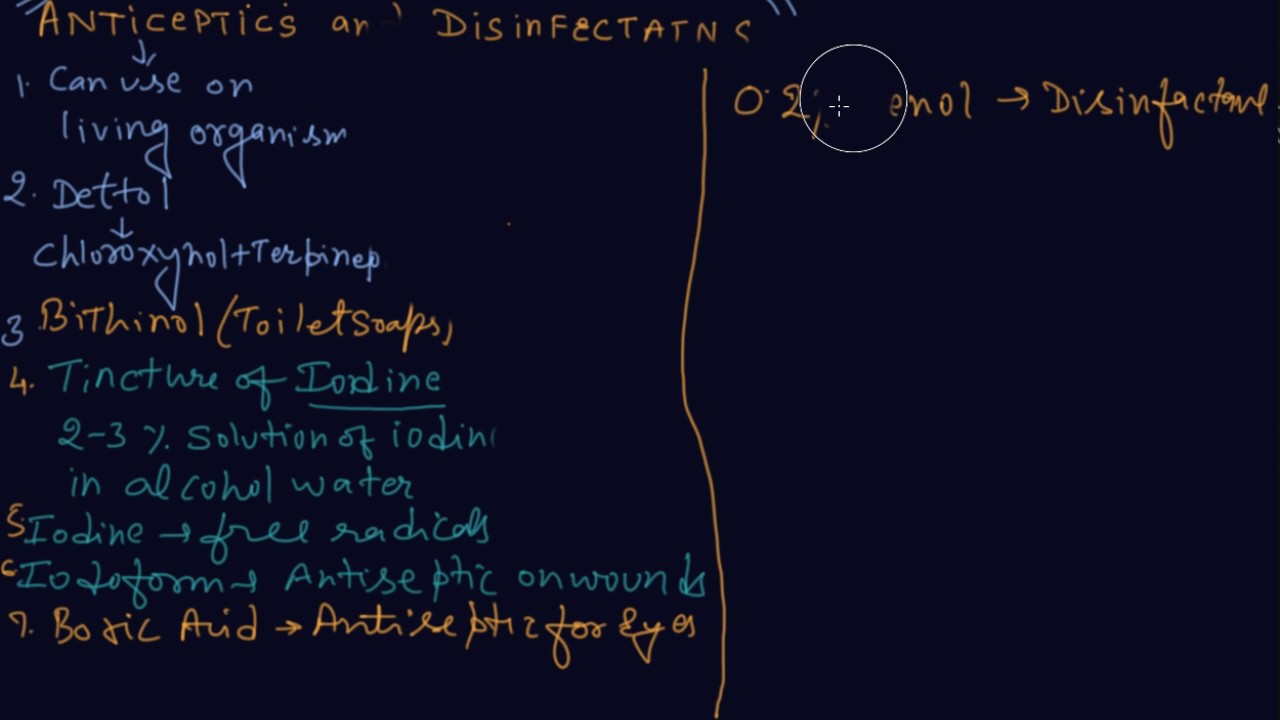 "ANTICEPTICS an DISINFECTATNS"
1. Can use on
living organism
2. Dettol
Chloroxynol+Terpinep
3. Bithinol (Toilet Soaps)
4. Tincture of Iodine
2-3 % solution of iodin
in alcohol water
5. Iodine → free radicals
6. Iodoform → Antiseptic on wounds
7. Boric Acid → Antiseptic for Eyes
0.2% enol → Disinfactant